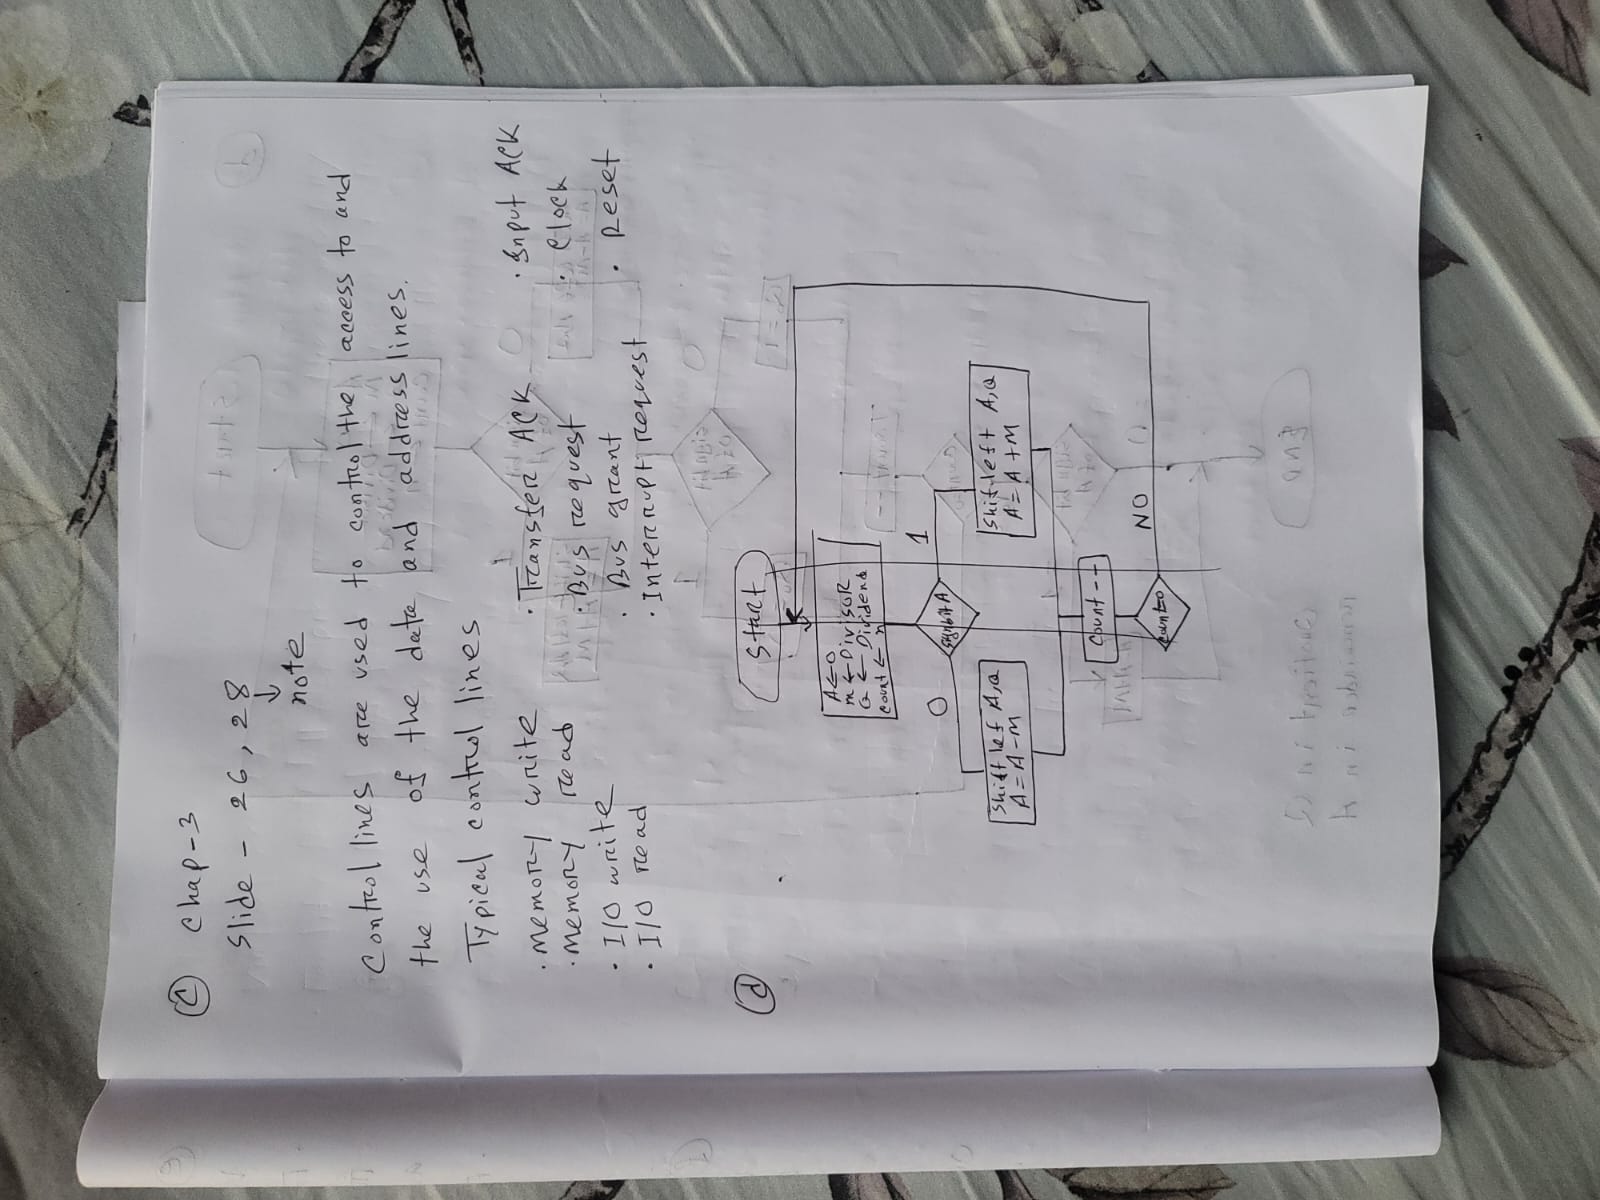 C
Chap-3
Slide - 26, 28
note
Control lines are used to control the access to and
the use of the data and address lines.
Typical control lines
. memory write
. memory read
. I/O write
. I/O read
. Transfer ACK
. Bus request
. Bus grant
. Interrupt request
. Input ACK
. Clock
. Reset
d
Start
A ← 0
m ← Divisor
Q ← Dividend
count ← n
signbit A
0
1
Shift lef A,Q
A = A - M
Shift left A,Q
A = A + M
Count --
NO